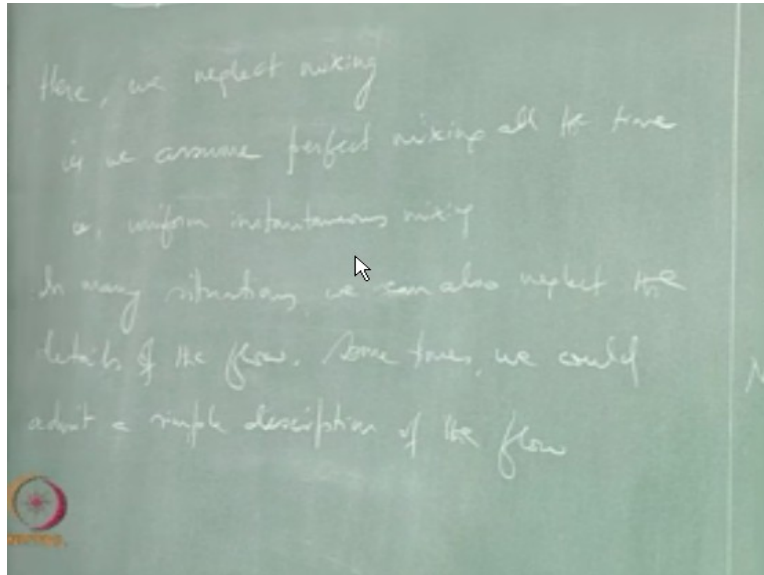 Here, we neglect mixing
ie we assume perfect mixing all the time
or, uniform instantaneous mixing
In many situations, we can also neglect the
details of the flow. Some times, we could
admit a simple description of the flow
N